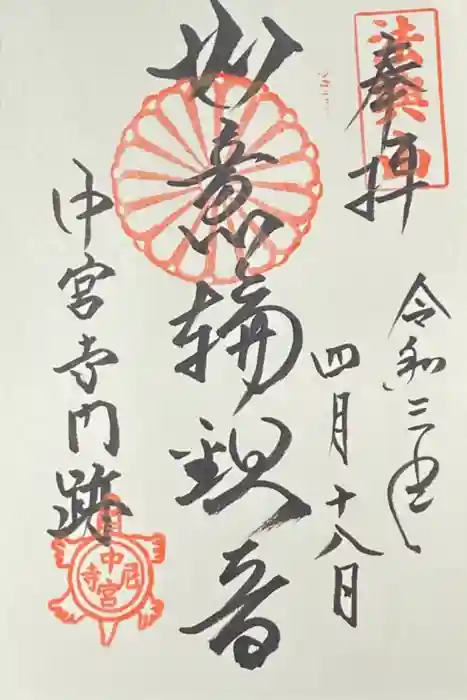 法興山
奉拝
令和三年
四月十八日
如意輪観音
中宮寺門跡
中宮尼寺